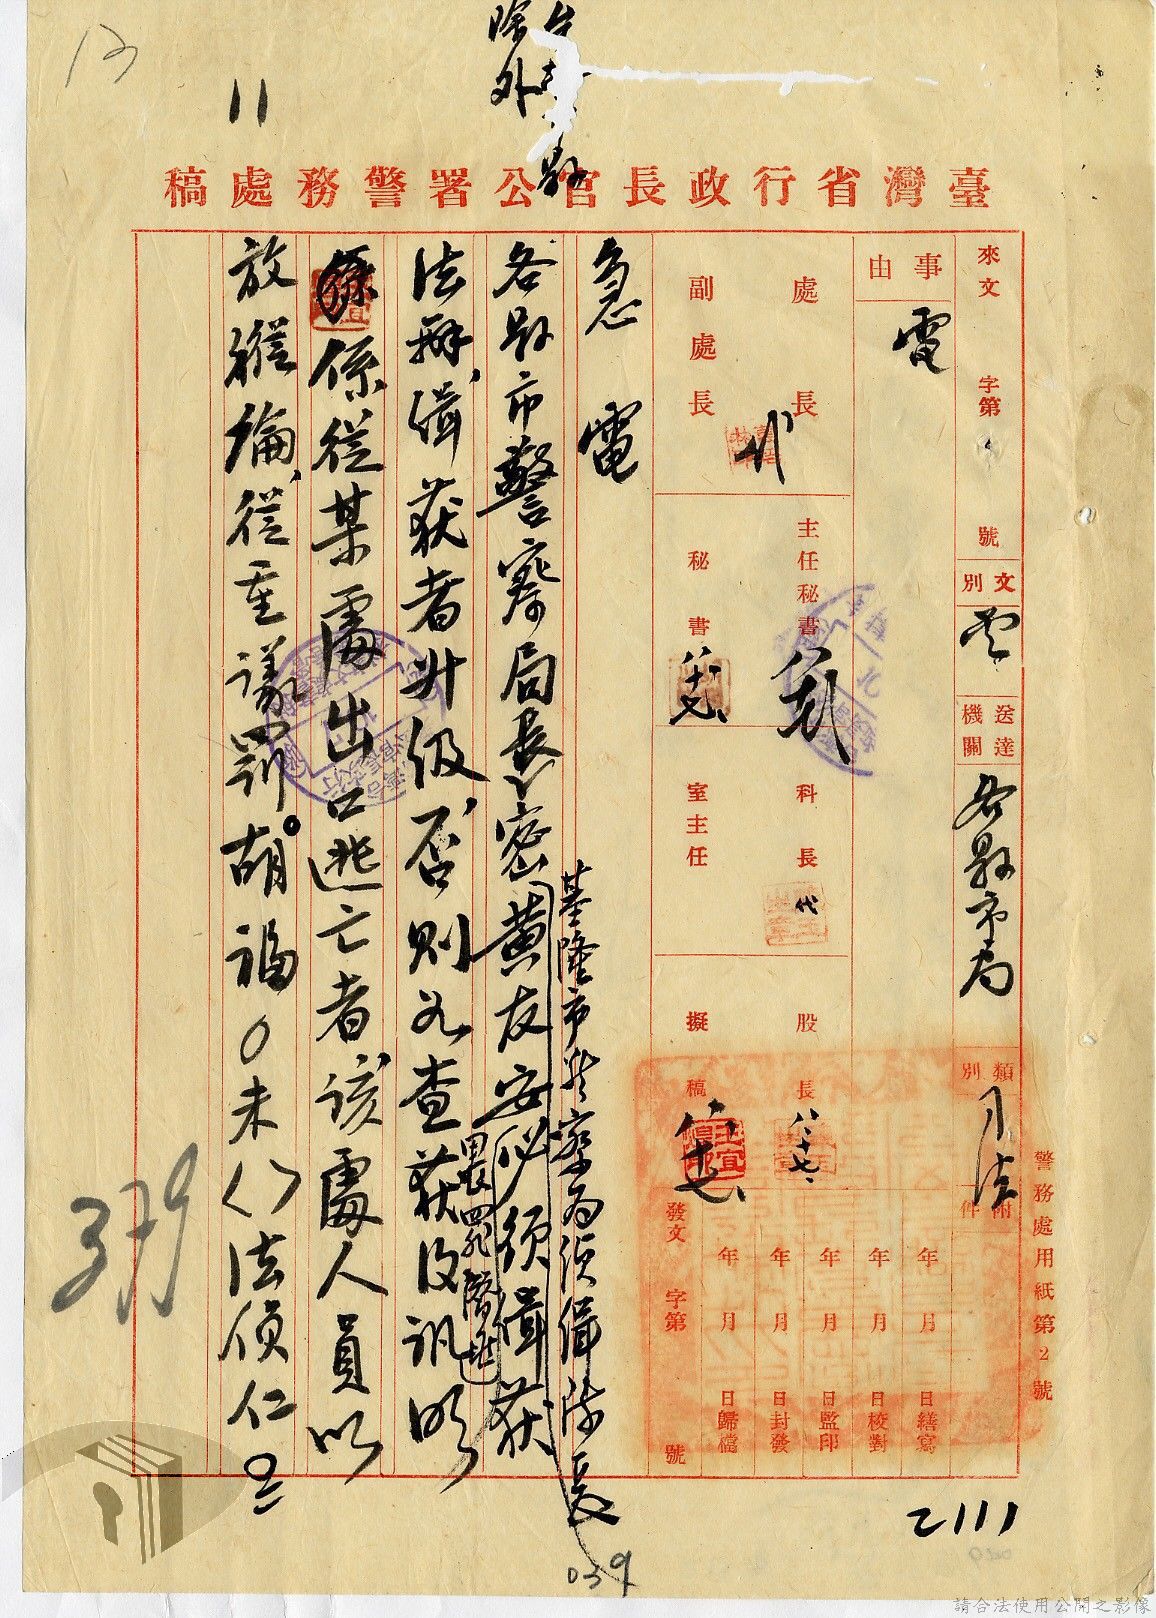 除外
11
臺灣省行政長官公署警務處稿
來文 字第 號
文別
電
送達機關
各縣市局
類別
司法
附件
事由
電
處長
代
主任秘書
科長
代
股長
八、十七、
副處長
秘書
室主任
擬稿
八、十七、
年 月 日繕寫
年 月 日校對
年 月 日監印
年 月 日封發
年 月 日歸檔
發文 字第 號
警務處用紙第2號
急電
基隆市警察局須緝陳長
各縣市警察局長密黃友安必須緝獲
畏罪潛逃
法辦，緝獲者升級，否則查獲後訊明
係從某處出口逃亡者，該處人員以
放縱論，從重議罰。胡福 未 法偵仁
2111
379
039
請合法使用公開之影像